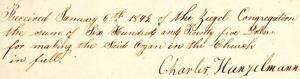 Received January 6th 1874 of the Ziegel Congregation
the sum of Six Hundred and Thirty five Dollars
for making the Said Organ in the Church
in full
Charles Hunzelmann